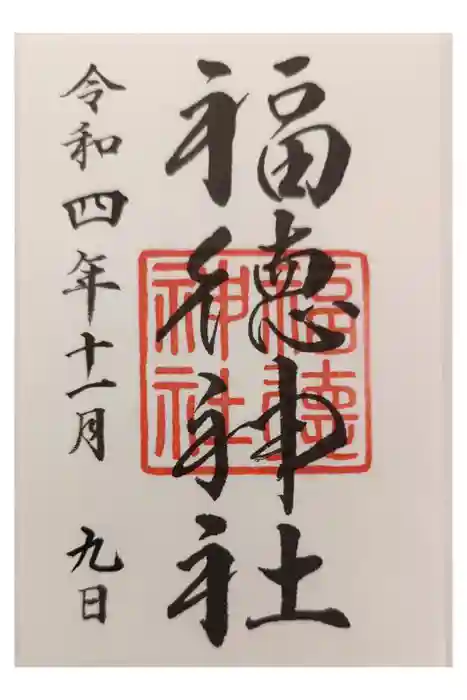 福徳神社
福徳
神社
令和四年十一月 九日